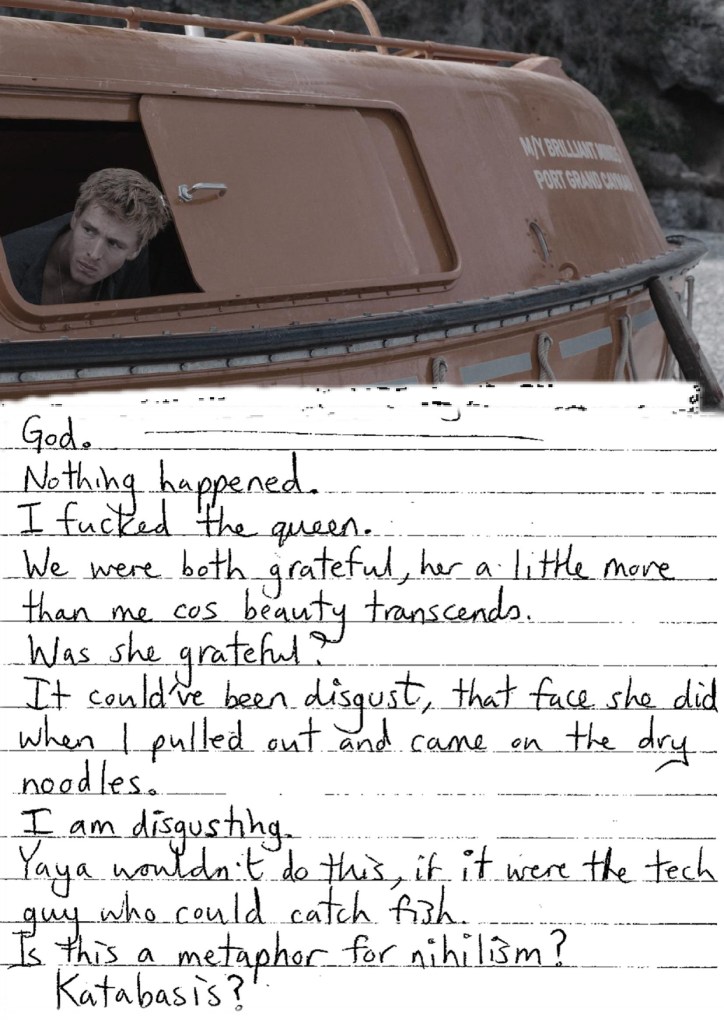 M/Y BRILLIANT
PORT GRAND CAYMAN
God.
Nothing happened.
I fucked the queen.
We were both grateful, her a little more
than me cos beauty transcends.
Was she grateful?
It could've been disgust, that face she did
when I pulled out and came on the dry
noodles.
I am disgusting.
Yaya wouldn't do this, if it were the tech
guy who could catch fish.
Is this a metaphor for nihilism?
Katabasis?